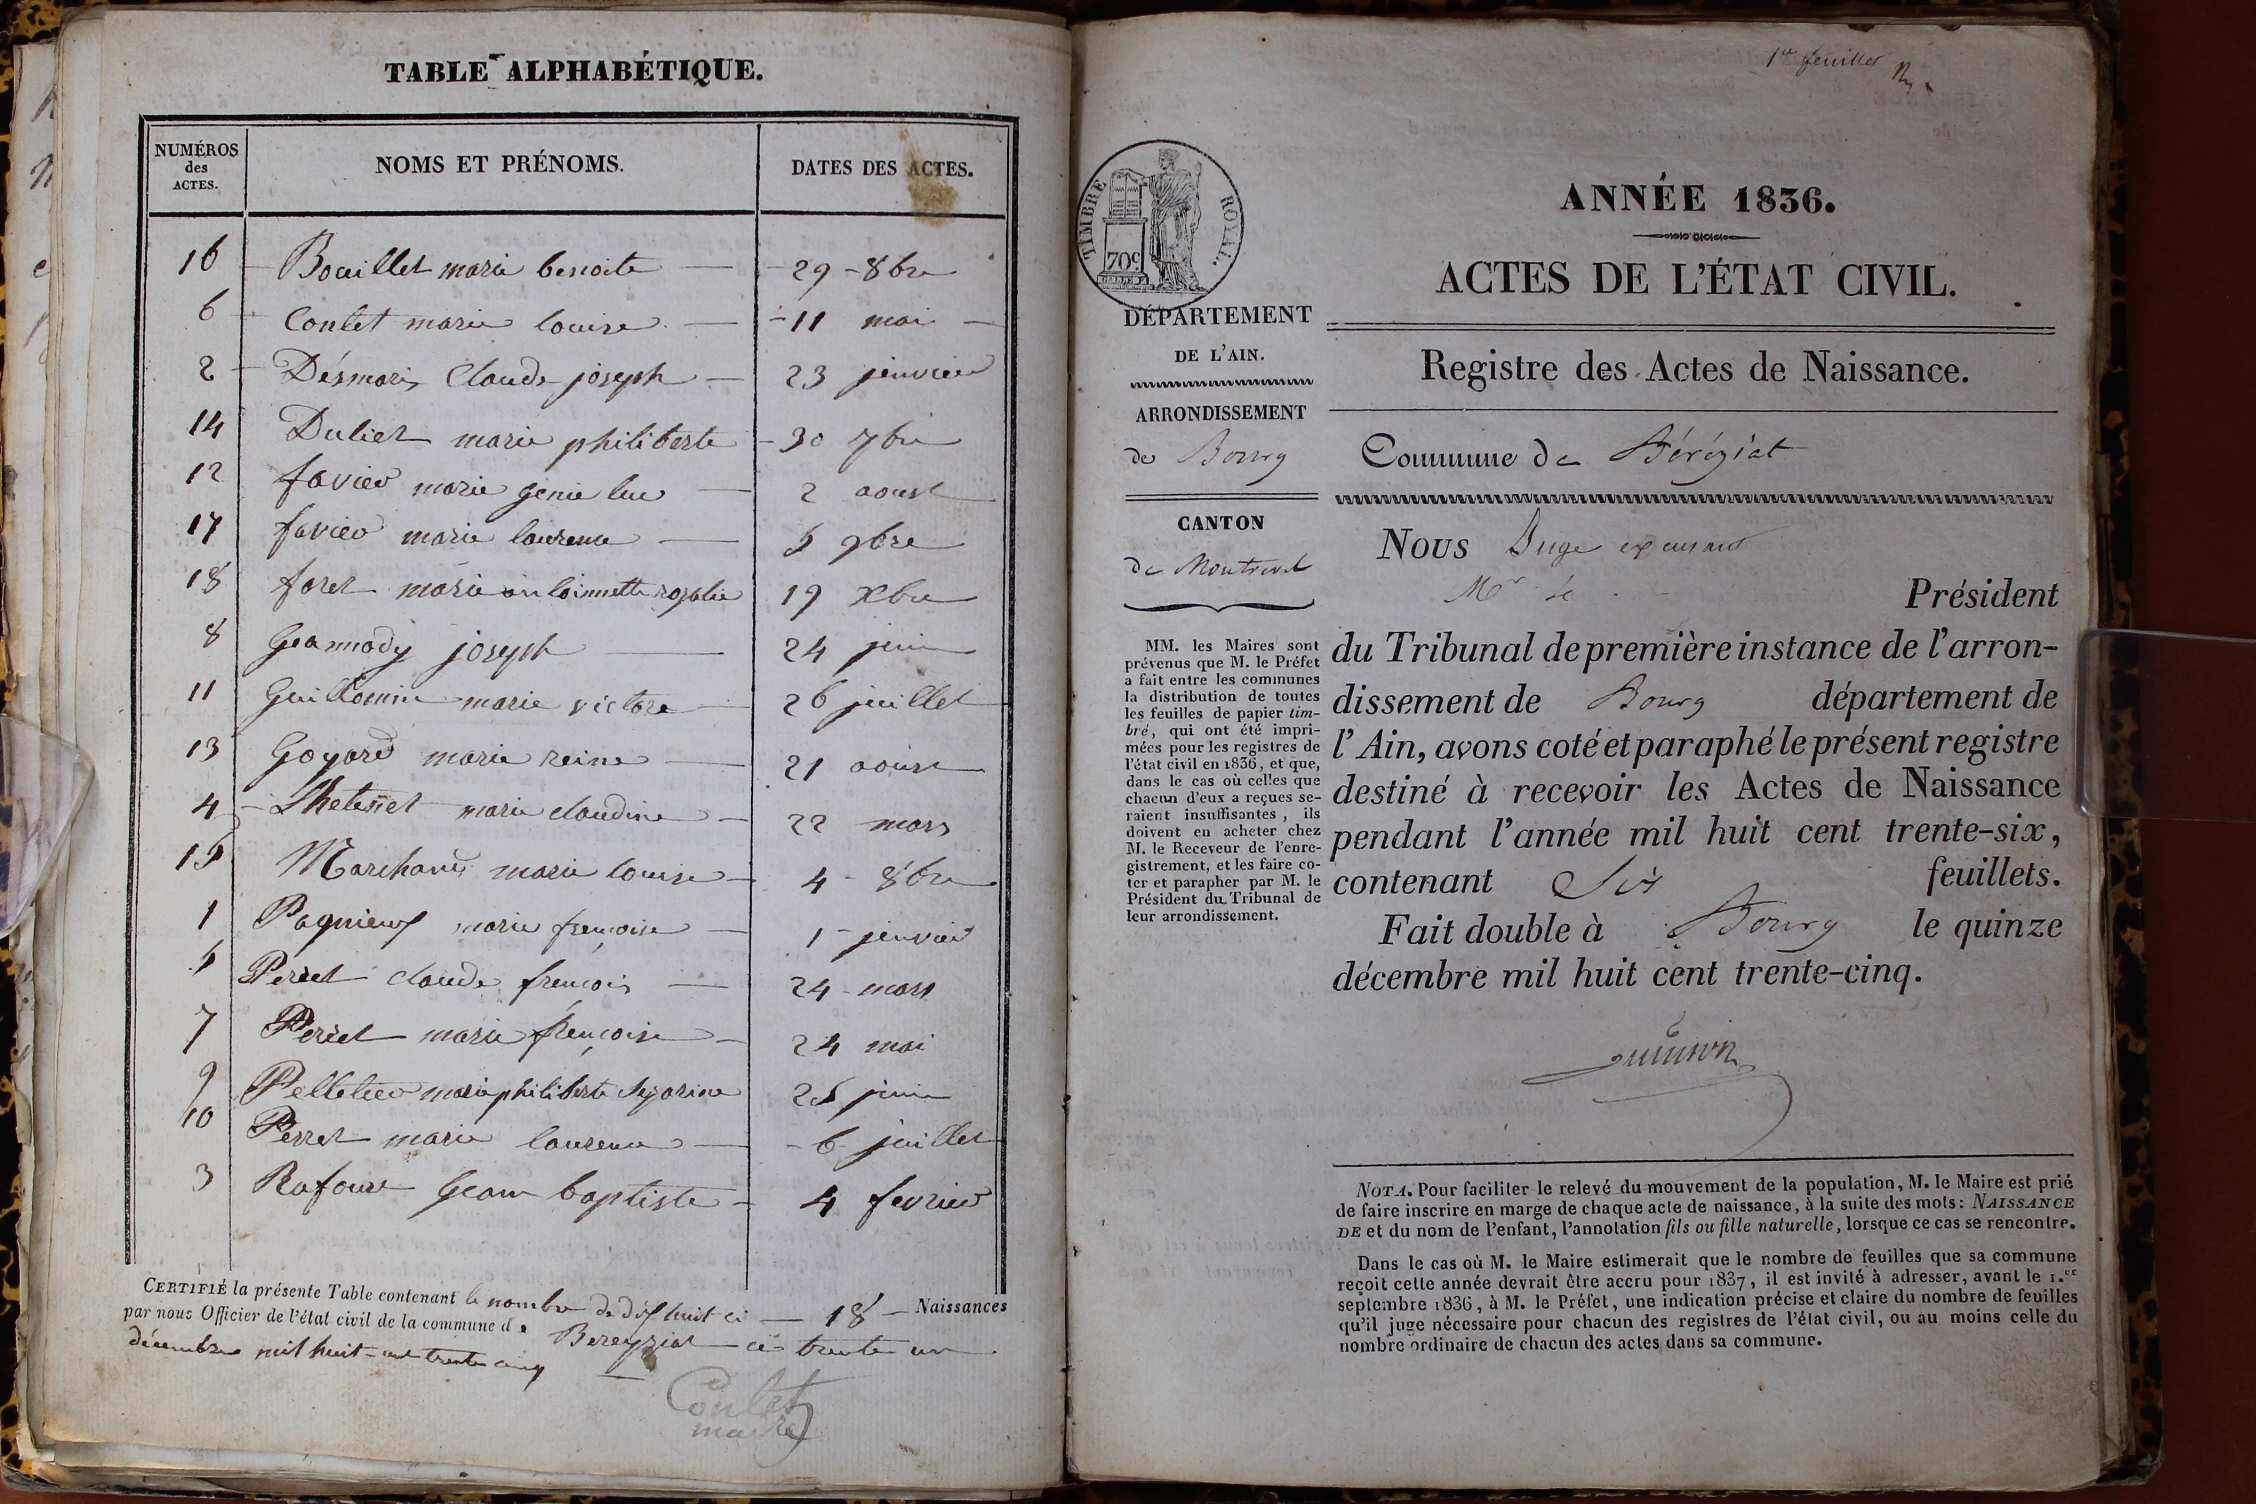 TABLE ALPHABÉTIQUE.
NUMÉROS des ACTES. NOMS ET PRÉNOMS. DATES DES ACTES.
16 Bouillet marie benoite 29 8bre
6 Contet marie louise 11 mai
2 Désmaris Claude joseph 23 jenvier
14 Dulier marie philiberte 30 7bre
12 favier marie genie 2 aoust
17 favier marie laurence 5 9bre
18 foret marie rosalie 19 Xbre
8 joseph 24 juin
11 Guillomin marie victore 26 juillet
13 Goyard marie reine 21 aoust
4 marie claudine 22 mars
15 Marchand marie louise 4 8bre
1 marie frencoise 1 jenvier
5 Perret claude frencois 24 mars
7 Perret marie frencoise 24 mai
9 Pelletier marie philiberte 25 juin
10 Perret marie laurence 6 juillet
3 Rafour jean baptiste 4 fevrier
CERTIFIÉ la présente Table contenant le nombre de dix huit ci — 18 — Naissances
par nous Officier de l'état civil de la commune de Bereyziat ce trente un
décembre mil huit cent trente cinq
Contet
maire
1er feuillet
TIMBRE ROYAL.
70c
DÉPARTEMENT
DE L'AIN.
ARRONDISSEMENT
de Bourg
CANTON
de Montrevel
MM. les Maires sont
prévenus que M. le Préfet
a fait entre les communes
la distribution de toutes
les feuilles de papier tim-
bré, qui ont été impri-
mées pour les registres de
l'état civil en 1836, et que,
dans le cas où celles que
chacun d'eux a reçues se-
raient insuffisantes, ils
doivent en acheter chez
M. le Receveur de l'enre-
gistrement, et les faire co-
ter et parapher par M. le
Président du Tribunal de
leur arrondissement.
ANNÉE 1836.
ACTES DE L'ÉTAT CIVIL.
Registre des Actes de Naissance.
Commune de Béréziat
Nous Juge
Mr le Président
du Tribunal de première instance de l'arron-
dissement de Bourg département de
l'Ain, avons coté et paraphé le présent registre
destiné à recevoir les Actes de Naissance
pendant l'année mil huit cent trente-six,
contenant Six feuillets.
Fait double à Bourg le quinze
décembre mil huit cent trente-cinq.
NOTA. Pour faciliter le relevé du mouvement de la population, M. le Maire est prié
de faire inscrire en marge de chaque acte de naissance, à la suite des mots: NAISSANCE
DE et du nom de l'enfant, l'annotation fils ou fille naturelle, lorsque ce cas se rencontre.
Dans le cas où M. le Maire estimerait que le nombre de feuilles que sa commune
reçoit cette année devrait être accru pour 1837, il est invité à adresser, avant le 1.er
septembre 1836, à M. le Préfet, une indication précise et claire du nombre de feuilles
qu'il juge nécessaire pour chacun des registres de l'état civil, ou au moins celle du
nombre ordinaire de chacun des actes dans sa commune.